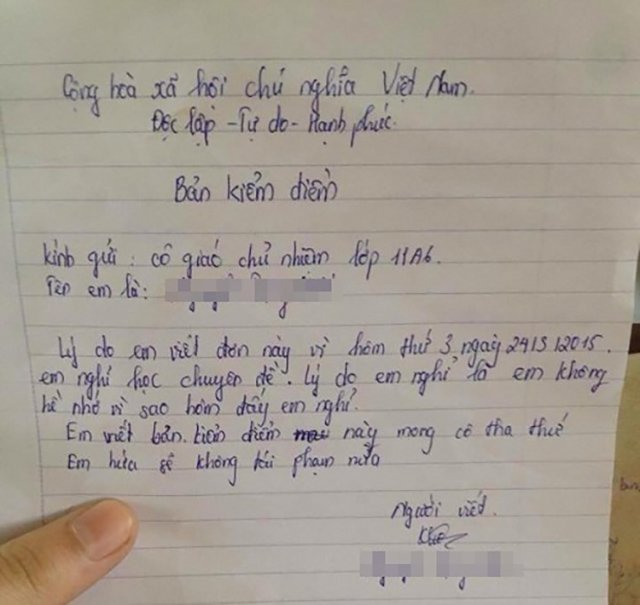 Cộng hoà xã hội chủ nghĩa Việt Nam.
Độc lập - Tự do - Hạnh phúc.
Bản kiểm điểm
Kính gửi : cô giáo chủ nhiệm lớp 11A6.
Tên em là:
Lý do em viết đơn này vì hôm thứ 3 ngày 24/3/2015.
em nghỉ học chuyên đề. Lý do em nghỉ là em không
hề nhớ vì sao hôm đấy em nghỉ.
Em viết bản kiểm điểm này mong cô tha thứ
Em hứa sẽ không tái phạm nữa
Người viết.